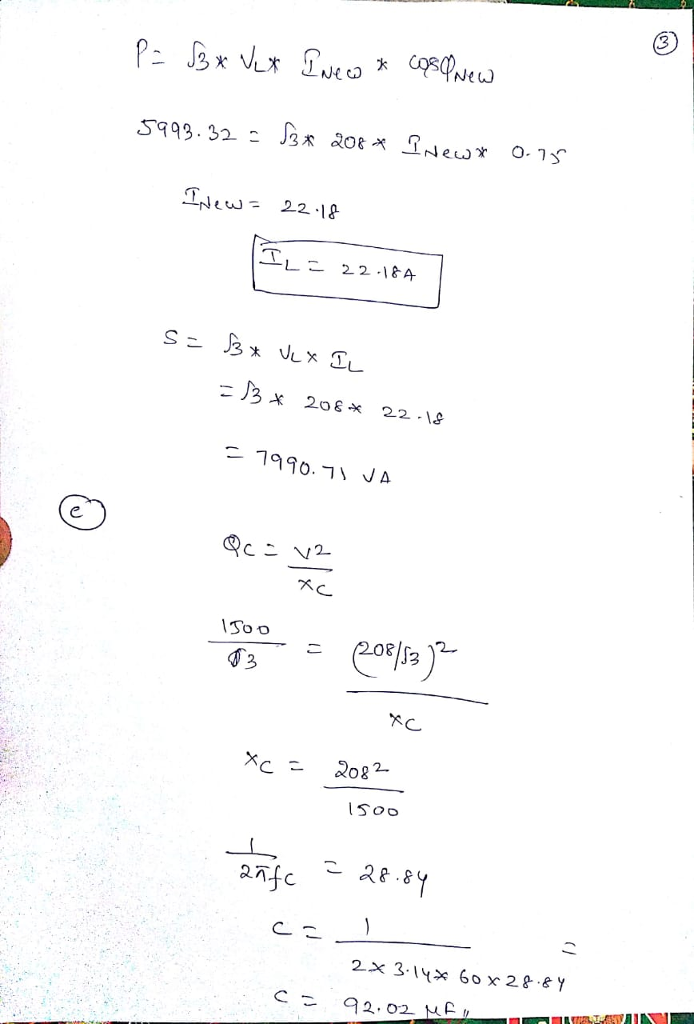 ③
P = √3 * VL * INew * cosφNew
5993.32 = √3 * 208 * INew * 0.75
INew = 22.18
IL = 22.18A
S = √3 * VL × IL
= √3 * 208 * 22.18
= 7990.71 VA
ⓔ
QC = V2
xc
1500
3
= (208/√3)2
xc
xc = 2082
1500
1
2πfc = 28.84
C = 1
2 × 3.14 × 60 × 28.84 =
C = 92.02 μF